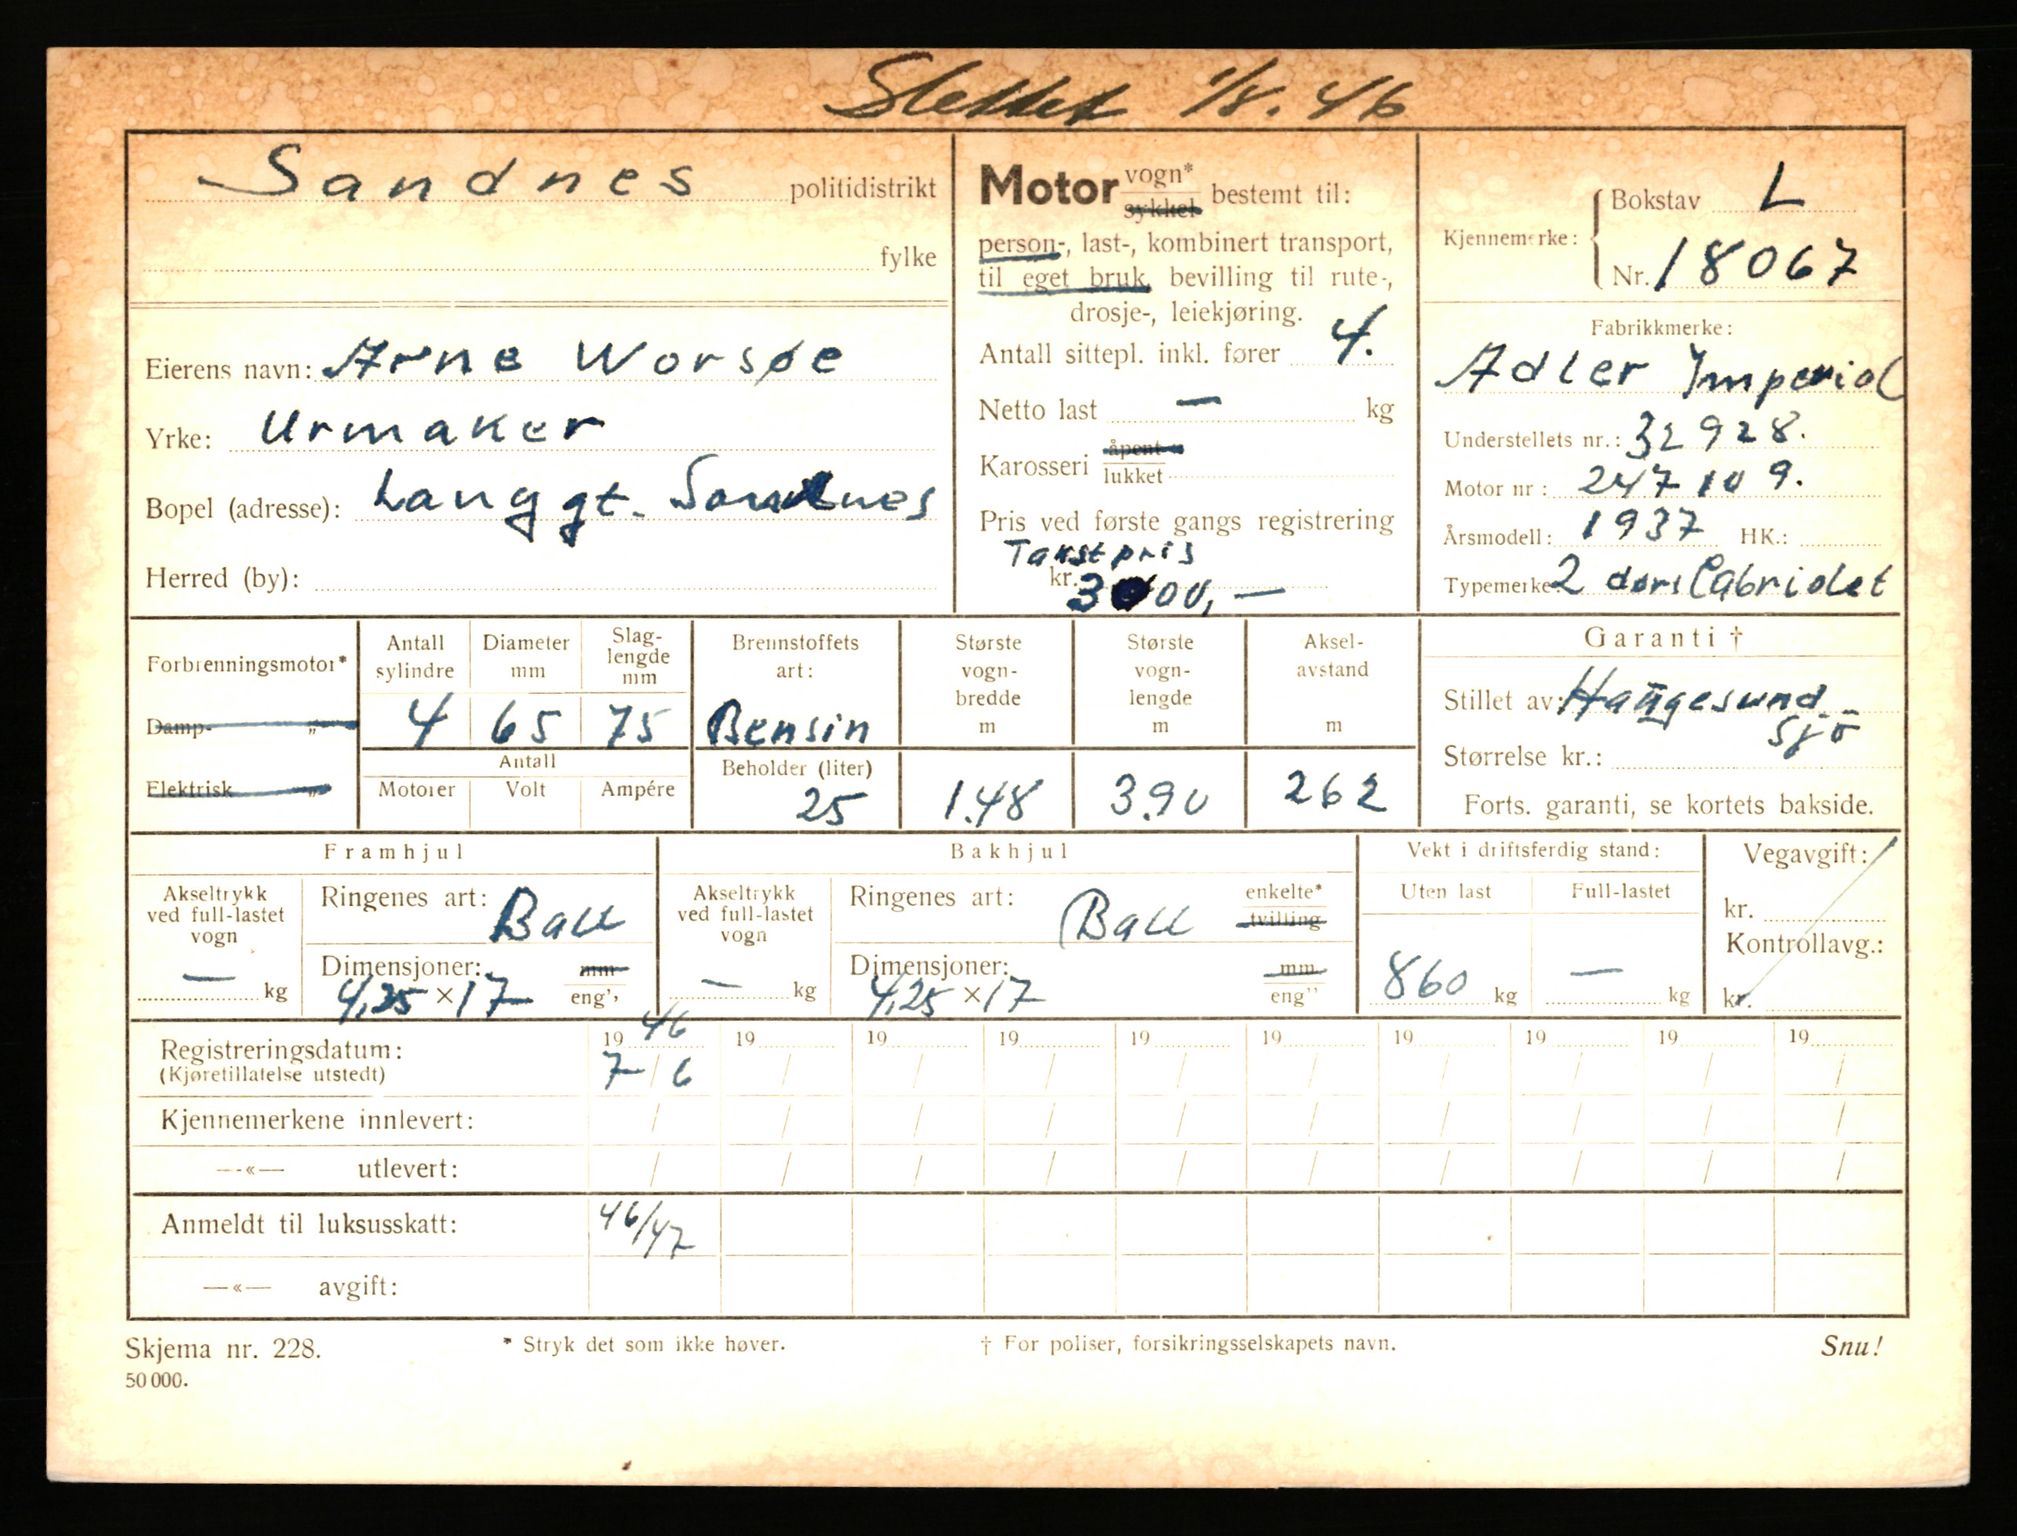 Slettet 1/8.46
Sandnes politidistrikt
fylke
Eierens navn: Arne Worsøe
Yrke: Urmaker
Bopel (adresse): Langgt. Sandnes
Herred (by):
Motor vogn* sykkel bestemt til:
person-, last-, kombinert transport,
til eget bruk, bevilling til rute-,
drosje-, leiekjøring.
Antall sittepl. inkl. fører 4.
Netto last — kg
Karosseri åpent lukket
Pris ved første gangs registrering
Takstpris
kr. 3000,—
Kjennemerke: Bokstav L
Nr. 18067
Fabrikkmerke:
Adler Imperial
Understellets nr.: 32928.
Motor nr: 247109.
Årsmodell: 1937 HK.:
Typemerke: 2 dørs Cabriolet
Forbrenningsmotor*
Damp- „
Elektrisk „
Antall sylindre
4
Diameter mm
65
Slag-lengde mm
75
Antall
Motorer Volt Ampére
Brennstoffets art:
Bensin
Beholder (liter)
25
Største vogn-bredde m
1.48
Største vogn-lengde m
3.90
Aksel-avstand m
262
Garanti †
Stillet av: Haugesund
Sjø
Størrelse kr.:
Forts. garanti, se kortets bakside.
Framhjul
Akseltrykk ved full-lastet vogn
— kg
Ringenes art: Ball
Dimensjoner: mm
4,25 × 17 eng''
Bakhjul
Akseltrykk ved full-lastet vogn
— kg
Ringenes art: Ball enkelte* tvilling
Dimensjoner: mm
4,25 × 17 eng''
Vekt i driftsferdig stand:
Uten last Full-lastet
860 kg — kg
Vegavgift:
kr.
Kontrollavg.:
kr.
Registreringsdatum: 19 46 19 19 19 19 19 19 19 19 19
(Kjøretillatelse utstedt) 7/6 / / / / / / / / /
Kjennemerkene innlevert: / / / / / / / / / /
—«— utlevert: / / / / / / / / / /
Anmeldt til luksusskatt: 46/47
—«— avgift:
Skjema nr. 228. * Stryk det som ikke høver. † For poliser, forsikringsselskapets navn. Snu!
50 000.